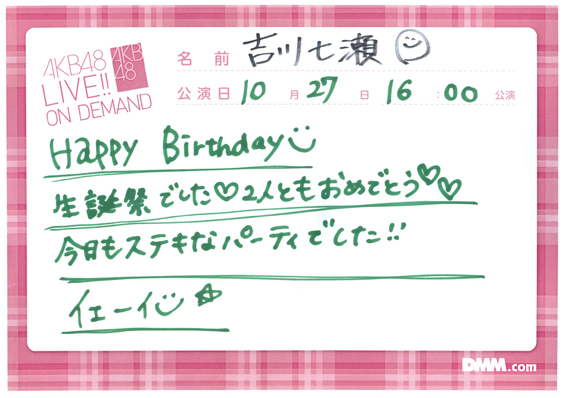 AKB48
LIVE!!
ON DEMAND
AKB
48
名前 吉川七瀬
公演日 10月27日 16:00 公演
Happy Birthday
生誕祭でした♡2人ともおめでとう♡♡
今日もステキなパーティでした!!
イェーイ☆
DMM.com